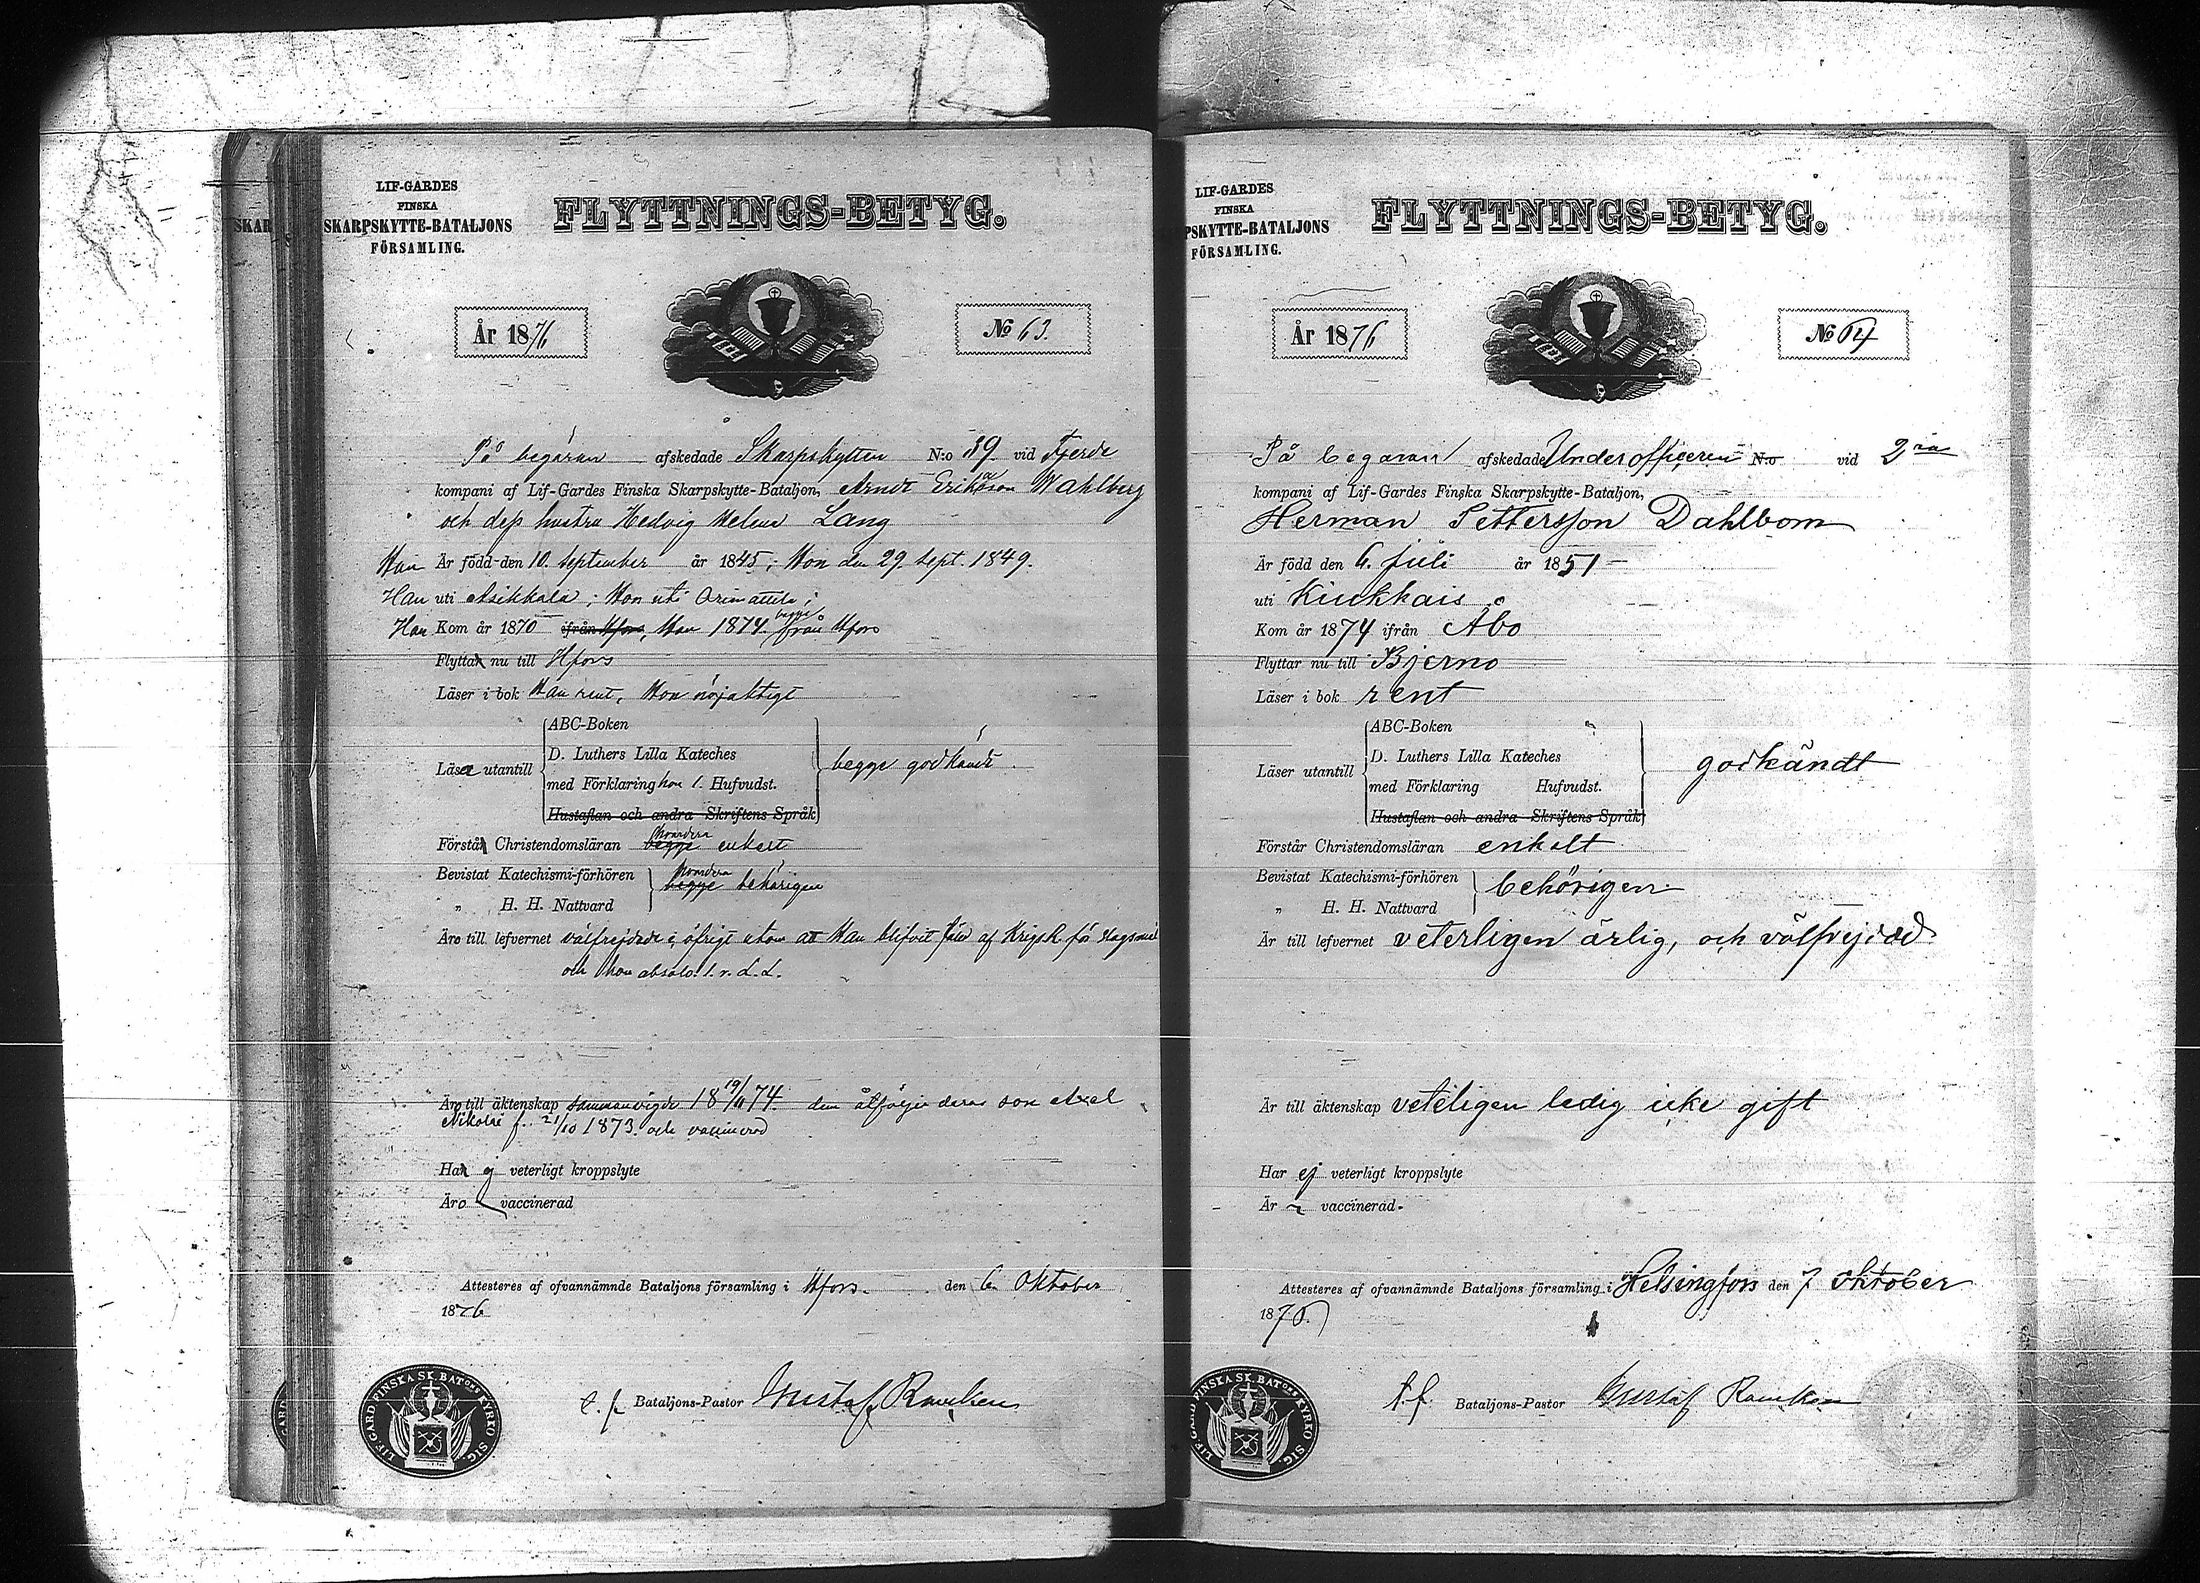 LIF-GARDES
FINSKA
SKARPSKYTTE-BATALJONS
FÖRSAMLING.
FLYTTNINGS-BETYG.
År 1876
No 63.
På begäran afskedade Skarpskytten N:o 39 vid Fjerde
kompani af Lif-Gardes Finska Skarpskytte-Bataljon, Arndt Eriksson Wahlberg
och dess hustru Hedvig Helena Lang
Han Är född den 10. September år 1845; Hon den 29 Sept. 1849.
Han uti Asikkala; Hon uti Orimattila;
Han Kom år 1870 ifrån Hfors, Hon 1874. begge från Hfors
Flytta nu till Hfors
Läser i bok Han rent, Hon nöjaktigt
ABC-Boken
D. Luthers Lilla Kateches
Läsa utantill begge godkändt
med Förklaring hon 1. Hufvudst.
Hustaflan och andra Skriftens Språk
hvardera
Förstå Christendomsläran begge enkelt
Bevistat Katechismi-förhören hvardera begge behörigen
„ H. H. Nattvard
Äro till lefvernet välfrejdade i öfrigt utom att Han blifvit fäld af Krigsr. för slagsmål
och hon absolv. l. v. L. L.
Äro till äktenskap sammanvigde 18 19/11 74. dem åtföljer deras son Axel
Nikolai f. 21/10 1873. och vaccinerad
Ha ej veterligt kroppslyte
Äro vaccinerad
Attesteres af ofvannämnde Bataljons församling i Hfors. den 6. Oktober
1876
LIF-GARD. FINSKA SK. BAT:ONS KYRKO SIG.
t. f. Bataljons-Pastor Gustaf
LIF-GARDES
FINSKA
PSKYTTE-BATALJONS
FÖRSAMLING.
FLYTTNINGS-BETYG.
År 1876
No 64
På begäran afskedade Underofficeren N:o vid 2ra
kompani af Lif-Gardes Finska Skarpskytte-Bataljon,
Herman Pettersson Dahlbom
Är född den 6. Juli år 1851
uti Kiukkais
Kom år 1874 ifrån Åbo
Flyttar nu till Bjerno
Läser i bok rent
ABC-Boken
D. Luthers Lilla Kateches
Läser utantill godkändt
med Förklaring Hufvudst.
Hustaflan och andra Skriftens Språk
Förstår Christendomsläran enkelt
Bevistat Katechismi-förhören behörigen
„ H. H. Nattvard
Är till lefvernet veterligen ärlig, och välfrejdad
Är till äktenskap veteligen ledig icke gift
Har ej veterligt kroppslyte
Är vaccinerad.
Attesteres af ofvannämnde Bataljons församling i Helsingfors den 7 Oktober
1876.
t. f. Bataljons-Pastor Gustaf